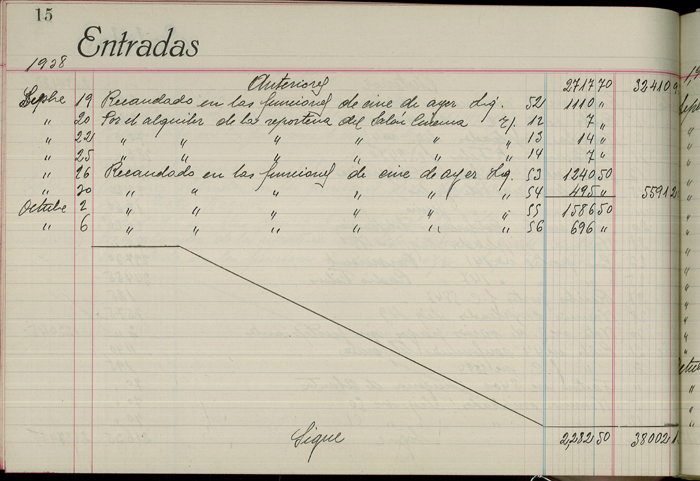 15
Entradas
1928
Anteriores 2717 70 32410
Sepbe 19 Recaudado en las funciones de cine de ayer Liq. 52 1110 "
" 20 Por el alquiler de la reposteria del Salón Cinema Ej. 12 7 "
" 22 " " " " " " 13 14 "
" 25 " " " " " " 14 7 "
" 26 Recaudado en las funciones de cine de ayer Liq. 53 1240 50
" 30 " " " " " " 54 495 " 5591 2
Octubre 2 " " " " " " 55 1586 50
" 6 " " " " " " 56 696 "
Sigue 2,282 50 38002 1